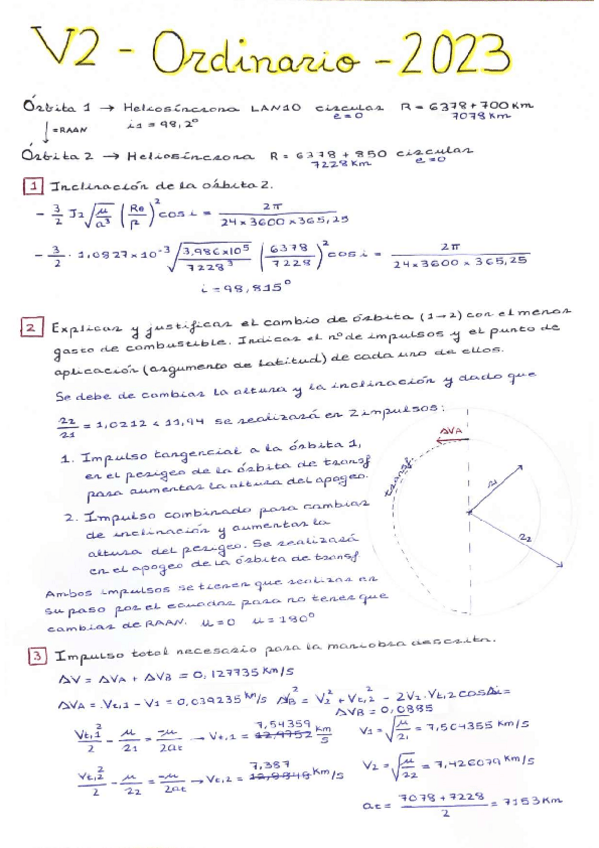 V2 - Ordinario - 2023
Órbita 1 → Heliosíncrona LAN10 circular R = 6378 + 700 Km
↓ = RAAN i1 = 98,2° e=0 7078 Km
Órbita 2 → Heliosíncrona R = 6378 + 850 circular
7228 Km e=0
1 Inclinación de la órbita 2.
- 3/2 J2 √(μ/a³) (Re/p)² cos i = 2π / (24 x 3600 x 365,25)
- 3/2 · 1,0827x10⁻³ √(3,986x10⁵ / 7228³) (6378/7228)² cos i = 2π / (24x3600 x 365,25)
i = 98,815°
2 Explicar y justificar el cambio de órbita (1→2) con el menor
gasto de combustible. Indicar el nº de impulsos y el punto de
aplicación (argumento de latitud) de cada uno de ellos.
Se debe de cambiar la altura y la inclinación y dado que
r2/r1 = 1,0212 < 11,94 se realizará en 2 impulsos:
1. Impulso tangencial a la órbita 1,
en el perigeo de la órbita de transf
para aumentar la altura del apogeo.
2. Impulso combinado para cambiar
de inclinación y aumentar la
altura del perigeo. Se realizará
en el apogeo de la órbita de transf
Ambos impulsos se tienen que realizar en
su paso por el ecuador para no tener que
cambiar de RAAN. u = 0 u = 180°
ΔVA
transf.
r1
r2
3 Impulso total necesario para la maniobra descrita.
ΔV = ΔVA + ΔVB = 0,127735 Km/s
ΔVA = Vt,1 - V1 = 0,039235 Km/s ΔVB² = V2² + Vt,2² - 2V2·Vt,2 cosΔi =
ΔVB = 0,0885
Vt,1²/2 - μ/r1 = -μ/2at → Vt,1 = 7,54359 Km/s V1 = √(μ/r1) = 7,504355 Km/s
Vt,2²/2 - μ/r2 = -μ/2at → Vt,2 = 7,387 Km/s V2 = √(μ/r2) = 7,426079 Km/s
at = (7078 + 7228)/2 = 7153 Km